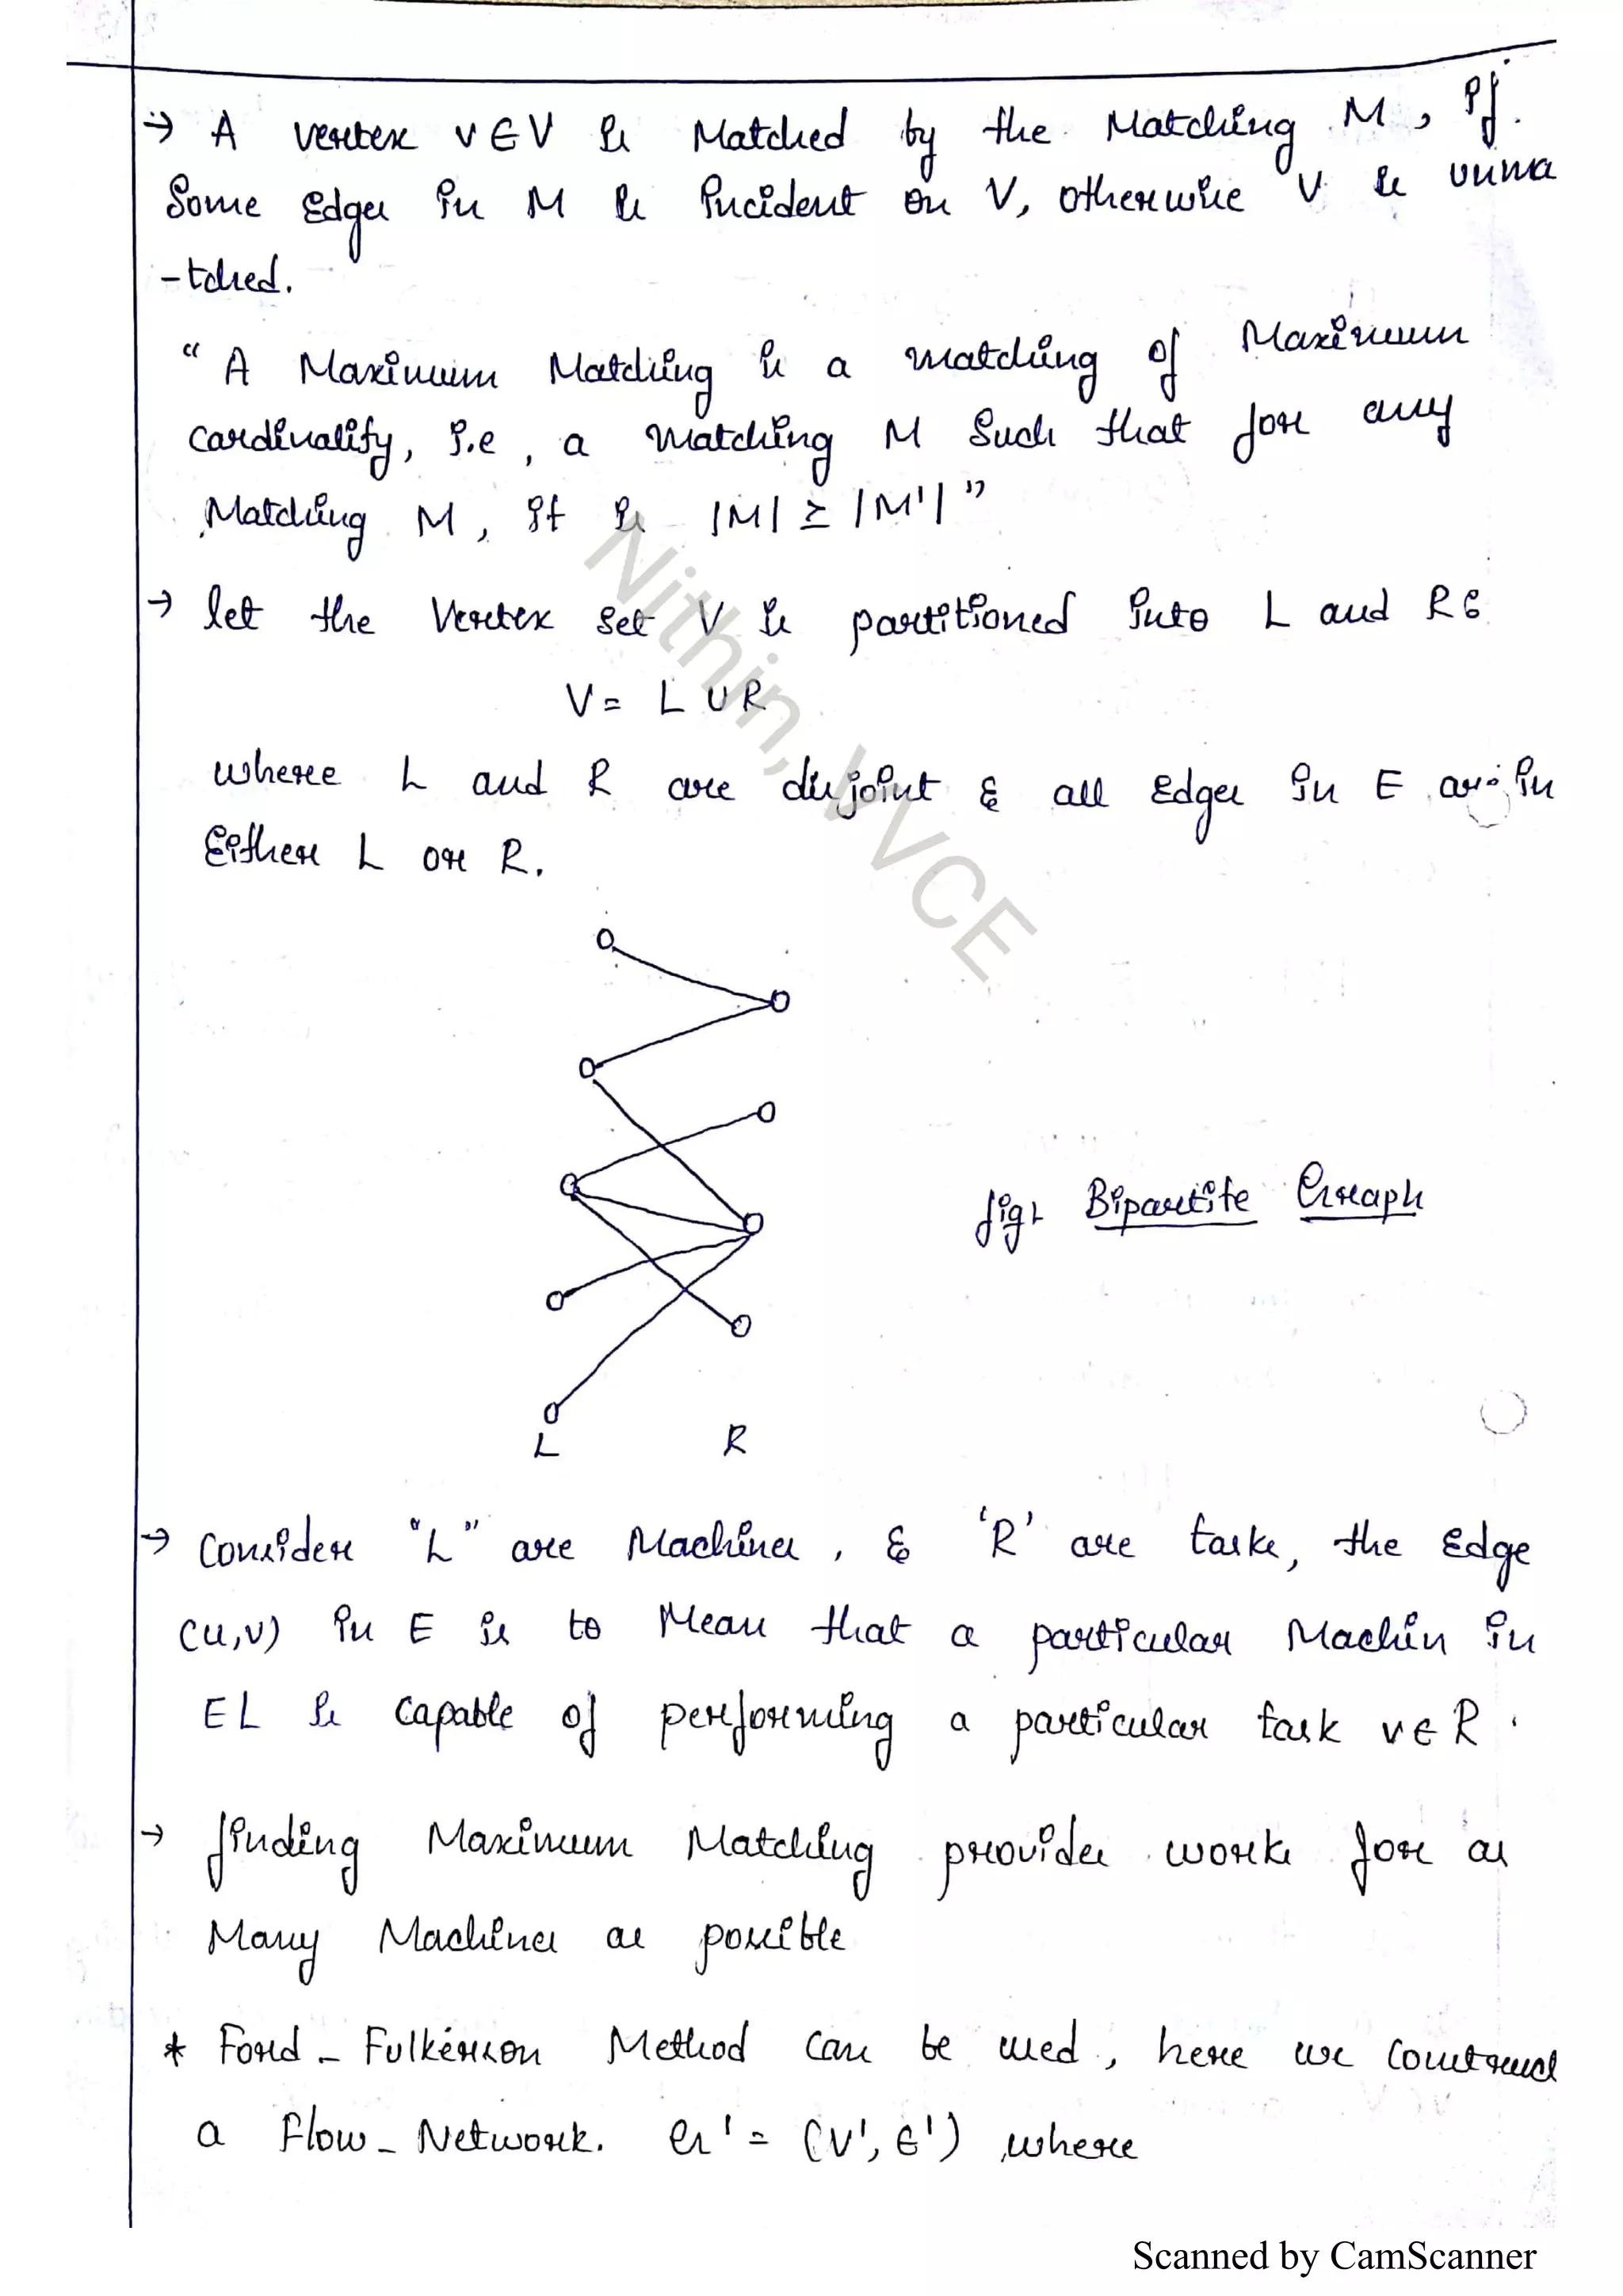 → A vertex v ∈ V is Matched by the Matching M, if
Some Edges in M is incident on V, otherwise V is unma
-tched.
"A Maximum Matching is a matching of Maximum
cardinality, i.e, a matching M Such that for any
Matching M, it is |M| ≥ |M'|"
→ let the Vertex set V is partitioned into L and R:
V = L ∪ R
where L and R are disjoint & all Edges in E are in
Either L or R.
fig:- Bipartite Graph
L R
→ Consider "L" are Machines, & 'R' are tasks, the Edge
(u,v) in E is to Mean that a particular Machin in
EL is capable of performing a particular task v ∈ R.
→ finding Maximum Matching provides works for as
Many Machines as possible
* Ford - Fulkerson Method can be used, here we construct
a Flow - Network. G' = (V', E') where
Nithin, VVCE
Scanned by CamScanner